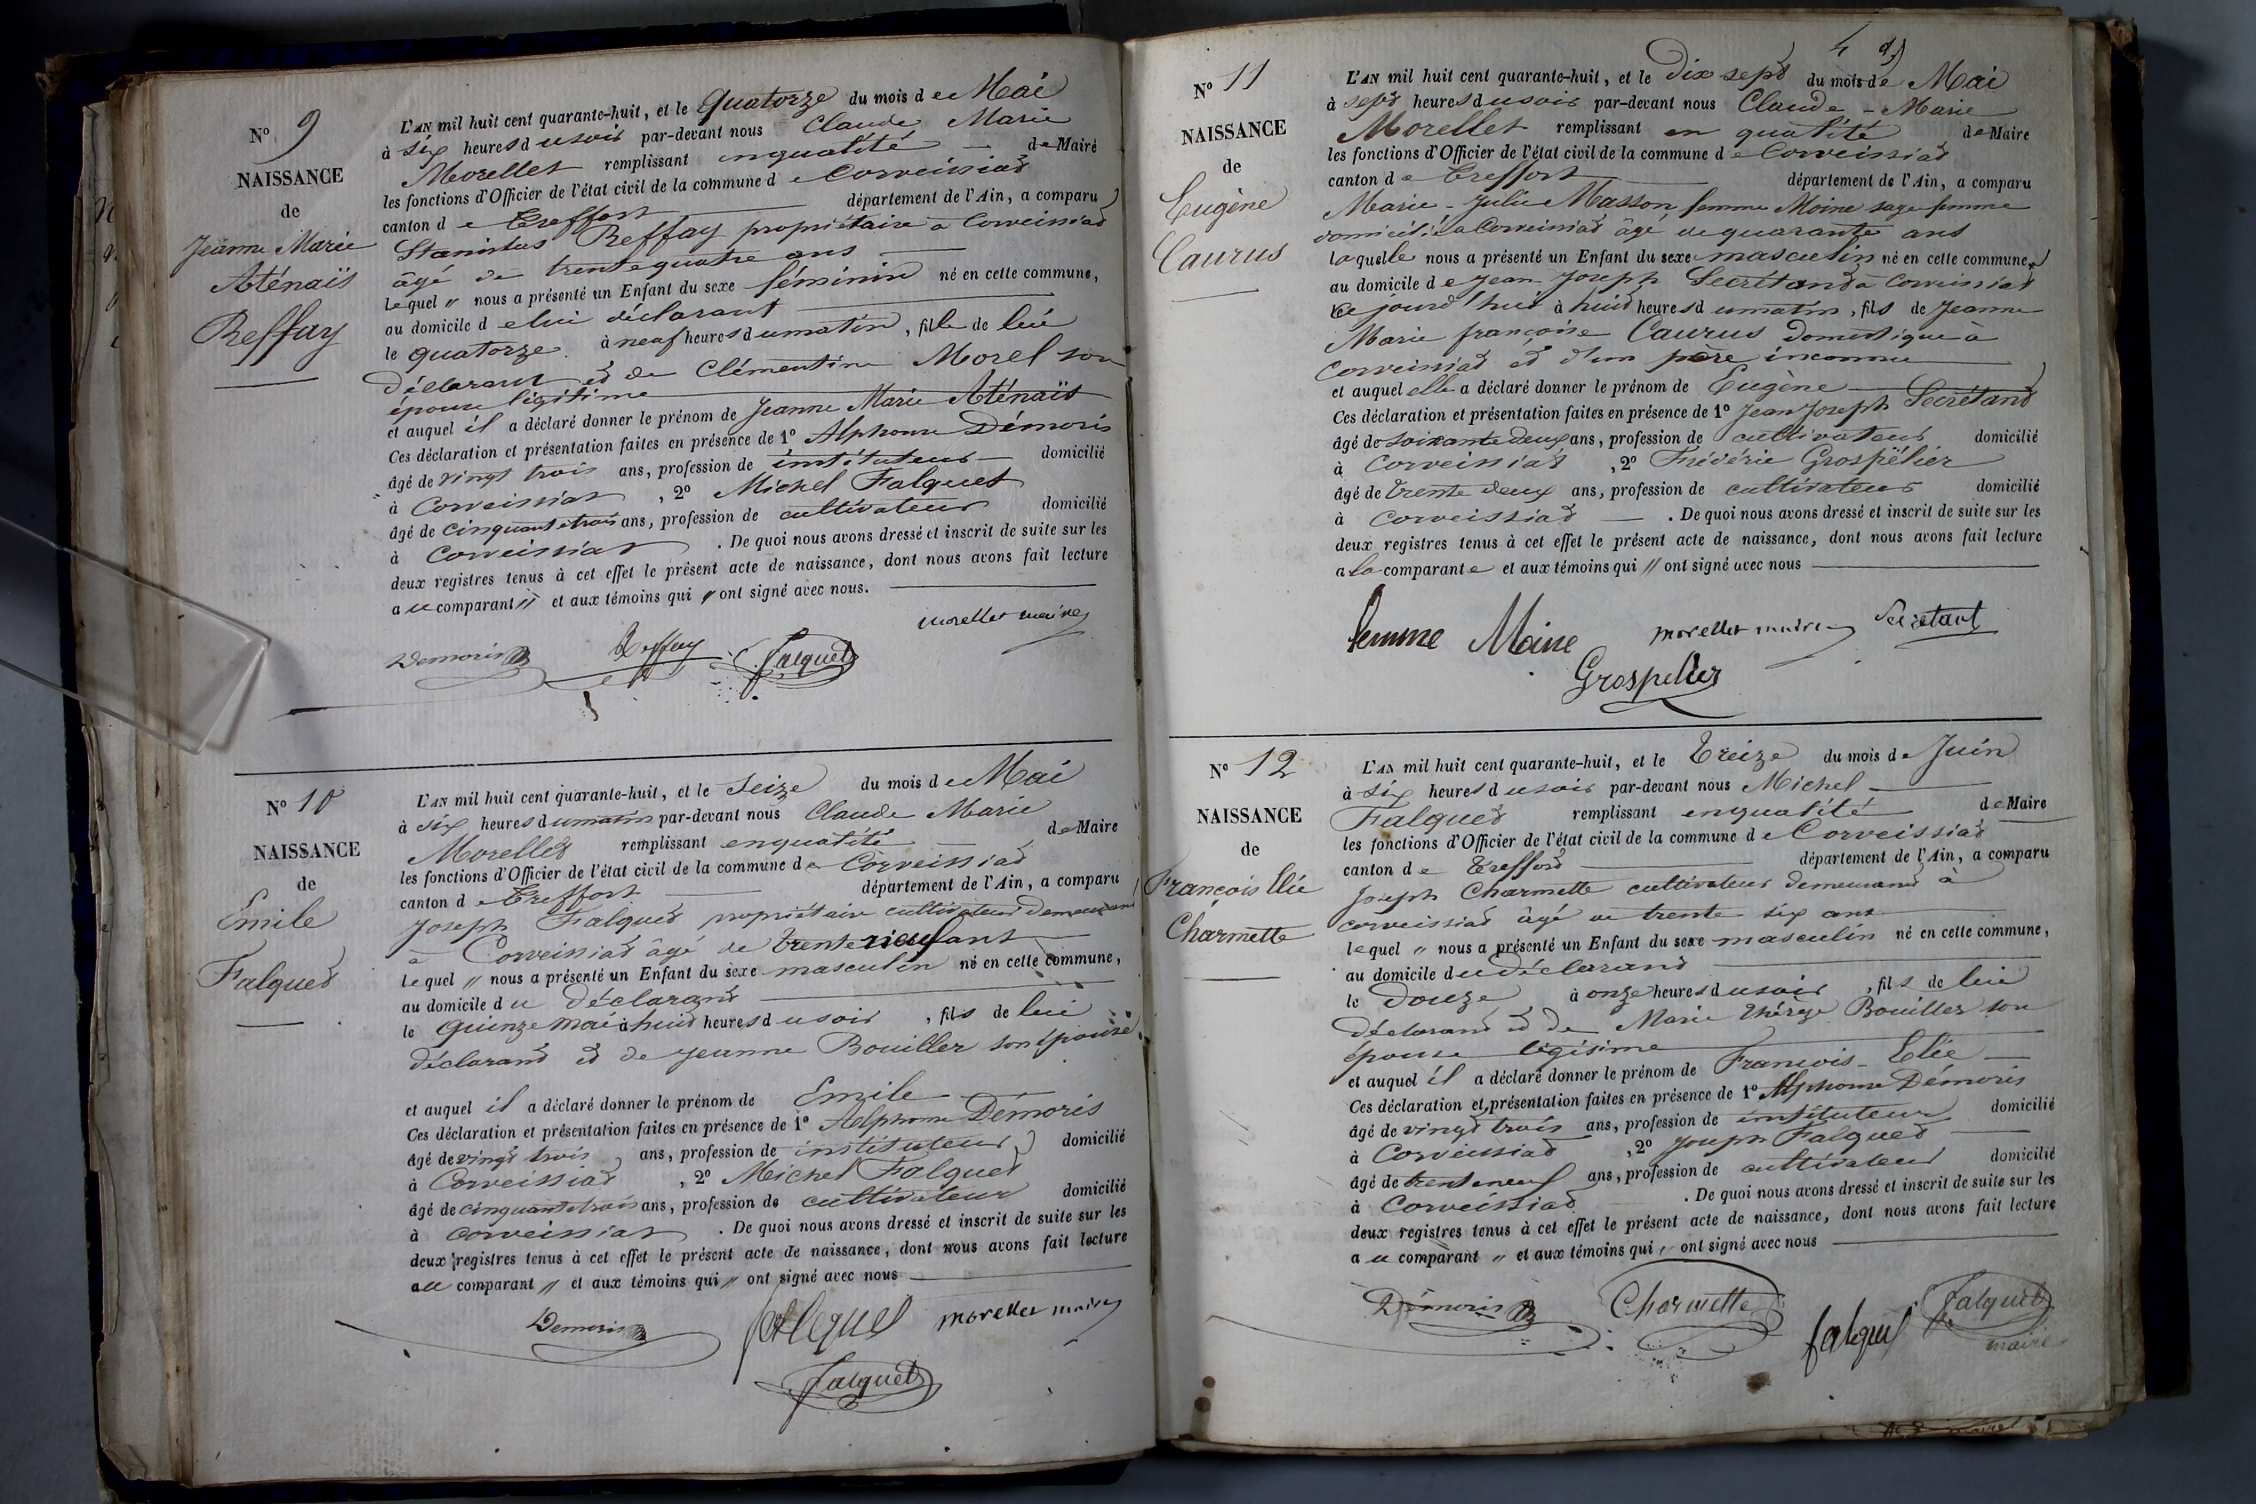 N° 9
NAISSANCE
de
Jeanne Marie
Aténaïs
Reffay
L'AN mil huit cent quarante-huit, et le quatorze du mois de Mai
à six heures du soir par-devant nous Claude Marie
Morellet remplissant en qualité de Maire
les fonctions d'Officier de l'état civil de la commune de Corveissiat
canton de Treffort département de l'Ain, a comparu
Stanislas Reffay propriétaire à Corveissiat
âgé de trente quatre ans
lequel " nous a présenté un Enfant du sexe féminin né en cette commune,
au domicile de lui déclarant
le quatorze à neuf heures du matin, fille de lui
déclarant et de Clémentine Morel son
épouse légitime
et auquel il a déclaré donner le prénom de Jeanne Marie Aténaïs
Ces déclaration et présentation faites en présence de 1° Alphonse Démoris
âgé de vingt trois ans, profession de instituteur domicilié
à Corveissiat, 2° Michel Falquet
âgé de cinquante trois ans, profession de cultivateur domicilié
à Corveissiat. De quoi nous avons dressé et inscrit de suite sur les
deux registres tenus à cet effet le présent acte de naissance, dont nous avons fait lecture
au comparant " et aux témoins qui " ont signé avec nous.
morellet maire
Demoris Reffay Falquet
N° 10
NAISSANCE
de
Emile
Falquet
L'AN mil huit cent quarante-huit, et le Seize du mois de Mai
à six heures du matin par-devant nous Claude Marie
Morellet remplissant en qualité de Maire
les fonctions d'Officier de l'état civil de la commune de Corveissiat
canton de Treffort département de l'Ain, a comparu
Joseph Falquet propriétaire cultivateur demeurant
à Corveissiat âgé de trente neuf ans
lequel " nous a présenté un Enfant du sexe masculin né en cette commune,
au domicile du déclarant
le quinze mai à huit heures du soir, fils de lui
déclarant et de Jeanne Bouiller son épouse
et auquel il a déclaré donner le prénom de Emile
Ces déclaration et présentation faites en présence de 1° Alphonse Démoris
âgé de vingt trois ans, profession de instituteur domicilié
à Corveissiat, 2° Michel Falquet
âgé de cinquante trois ans, profession de cultivateur domicilié
à Corveissiat. De quoi nous avons dressé et inscrit de suite sur les
deux registres tenus à cet effet le présent acte de naissance, dont nous avons fait lecture
au comparant " et aux témoins qui " ont signé avec nous
Demoris falquet morellet maire
Falquet
N° 11
NAISSANCE
de
Eugène
Caurus
L'AN mil huit cent quarante-huit, et le Dix sept du mois de Mai
à sept heures du soir par-devant nous Claude-Marie
Morellet remplissant en qualité de Maire
les fonctions d'Officier de l'état civil de la commune de Corveissiat
canton de Treffort département de l'Ain, a comparu
Marie-Julie Masson femme Moine sage femme
domiciliée à Corveissiat âgé de quarante ans
laquelle nous a présenté un Enfant du sexe masculin né en cette commune,
au domicile de Jean Joseph Secrétand à Corveissiat
ce jourd'hui à huit heures du matin, fils de Jeanne
Marie françoise Caurus domestique à
Corveissiat et d'un père inconnu
et auquel elle a déclaré donner le prénom de Eugène
Ces déclaration et présentation faites en présence de 1° Jean Joseph Secrétand
âgé de soixante deux ans, profession de cultivateur domicilié
à Corveissiat, 2° Frédéric Grospélier
âgé de trente deux ans, profession de cultivateur domicilié
à Corveissiat. De quoi nous avons dressé et inscrit de suite sur les
deux registres tenus à cet effet le présent acte de naissance, dont nous avons fait lecture
a la comparante et aux témoins qui " ont signé avec nous
femme Moine morellet maire Secretant
Grospellier
N° 12
NAISSANCE
de
François Elie
Charmette
L'AN mil huit cent quarante-huit, et le Treize du mois de Juin
à six heures du soir par-devant nous Michel
Falquet remplissant en qualité de Maire
les fonctions d'Officier de l'état civil de la commune de Corveissiat
canton de Treffort département de l'Ain, a comparu
Joseph Charmette cultivateur demeurant à
Corveissiat âgé de trente six ans
lequel " nous a présenté un Enfant du sexe masculin né en cette commune,
au domicile du déclarant
le douze à onze heures du soir, fils de lui
déclarant et de Marie Thérèze Bouiller son
épouse légitime
et auquel il a déclaré donner le prénom de François-Elie
Ces déclaration et présentation faites en présence de 1° Alphonse Démoris
âgé de vingt trois ans, profession de instituteur domicilié
à Corveissiat, 2° Joseph Falquet
âgé de trente neuf ans, profession de cultivateur domicilié
à Corveissiat. De quoi nous avons dressé et inscrit de suite sur les
deux registres tenus à cet effet le présent acte de naissance, dont nous avons fait lecture
au comparant " et aux témoins qui " ont signé avec nous
Démoris Charmette falquet Falquet
maire